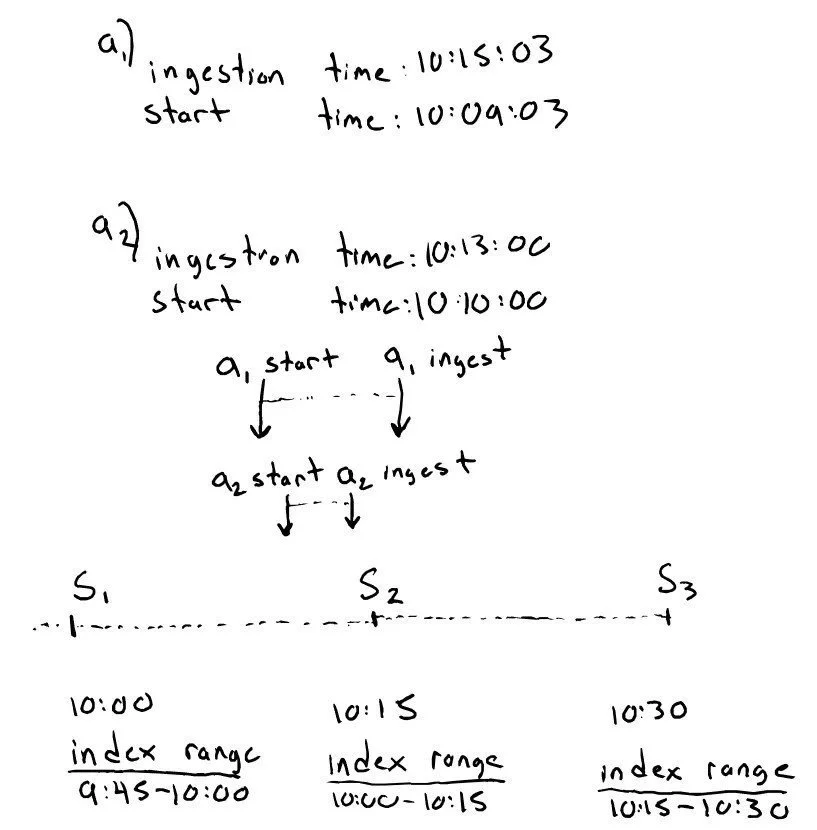 a1) ingestion time: 10:15:03
start time: 10:09:03
a2) ingestion time: 10:13:00
start time: 10:10:00
a1 start a1 ingest
a2 start a2 ingest
S1 S2 S3
10:00 10:15 10:30
index range index range index range
9:45-10:00 10:00-10:15 10:15-10:30